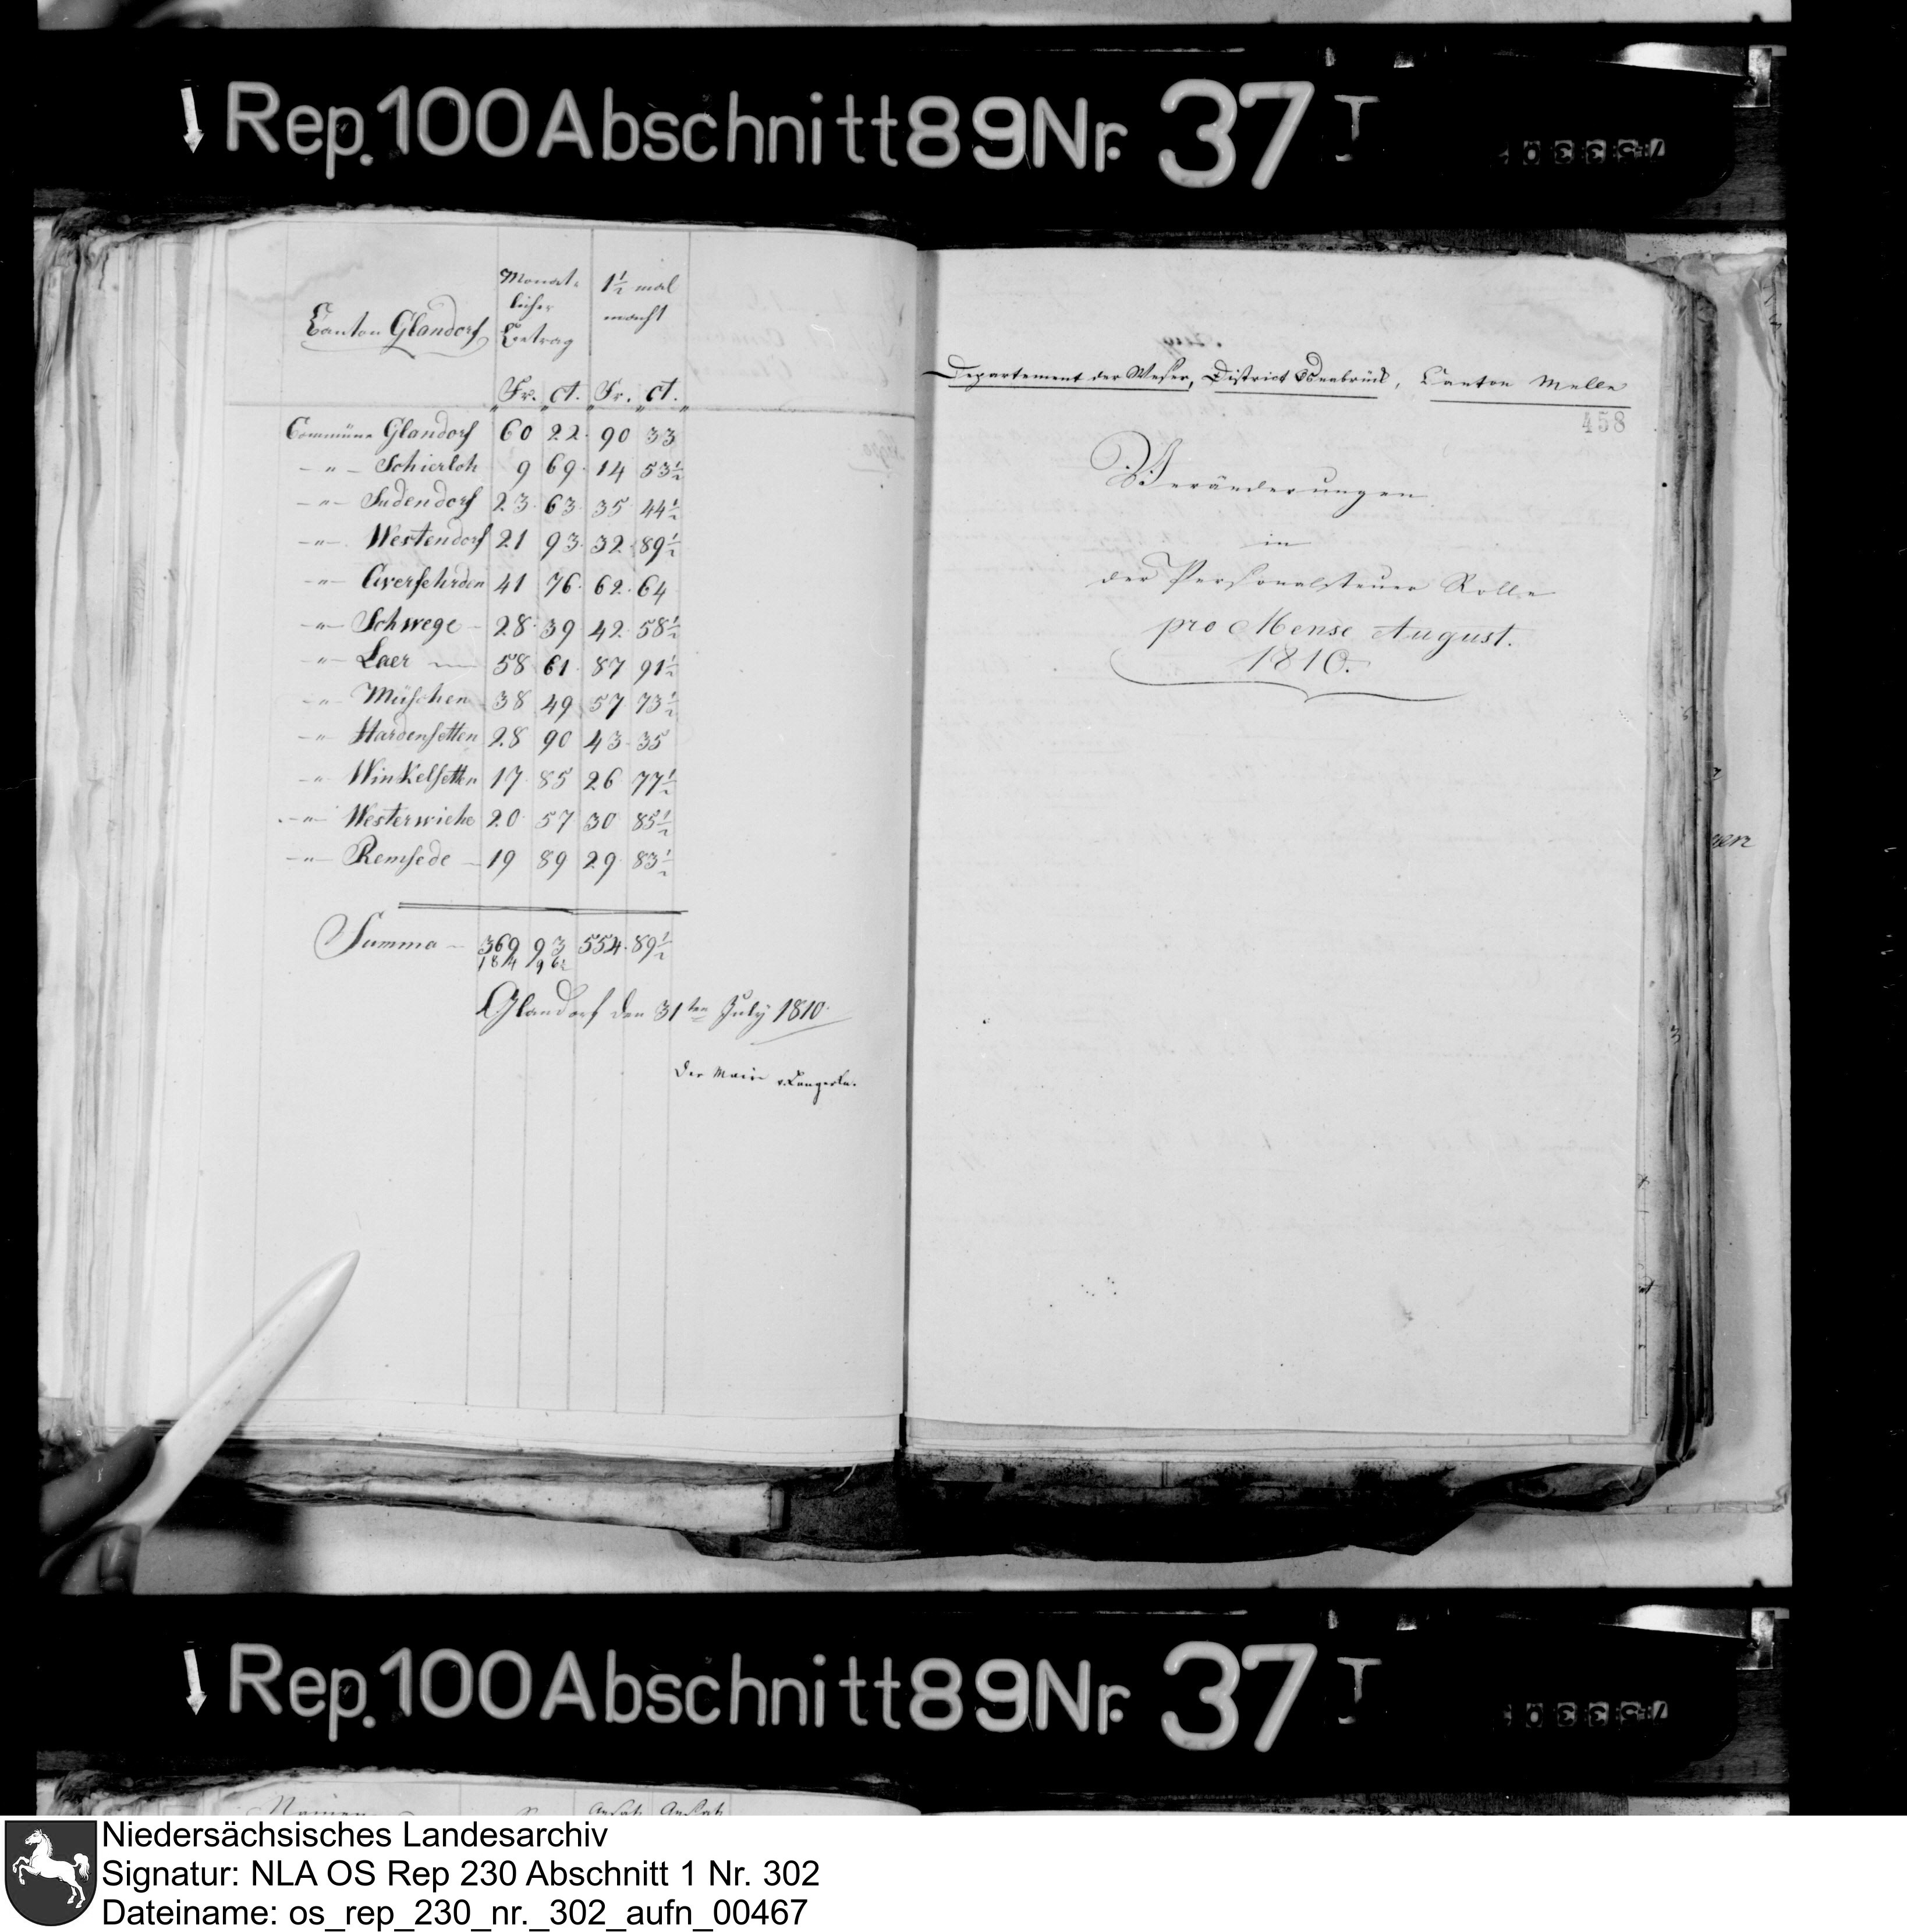 Rep. 100 Abschnitt 89 Nr. 37 I
Canton Glandorf
Monat-
licher
Betrag
1½ mal
macht
Fr. ct. Fr. ct.
Commüne Glandorf 60 22 90 33
-"- Schierloh 9 69 14 53½
-"- Sudendorf 23 63 35 44½
-"- Westendorf 21 93 32 89½
-"- Averfehrden 41 76 62 64
-"- Schwege 28 39 42 58½
-"- Laer 58 61 87 91½
-"- Müschen 38 49 57 73½
-"- Hardensetten 28 90 43 35
-"- Winkelsetten 17 85 26 77½
-"- Westerwiehe 20 57 30 85½
-"- Remsede 19 89 29 83½
Summa 369 93 554 89½
184 96½
Glandorf den 31ten July 1810.
Der Maire
Departement der Weser, District Osnabrück, Canton Melle
458
Veränderungen
in
der Personalsteuer Rolle
pro Mense August.
1810.
Rep. 100 Abschnitt 89 Nr. 37 I
Namen
Niedersächsisches Landesarchiv
Signatur: NLA OS Rep 230 Abschnitt 1 Nr. 302
Dateiname: os_rep_230_nr._302_aufn_00467